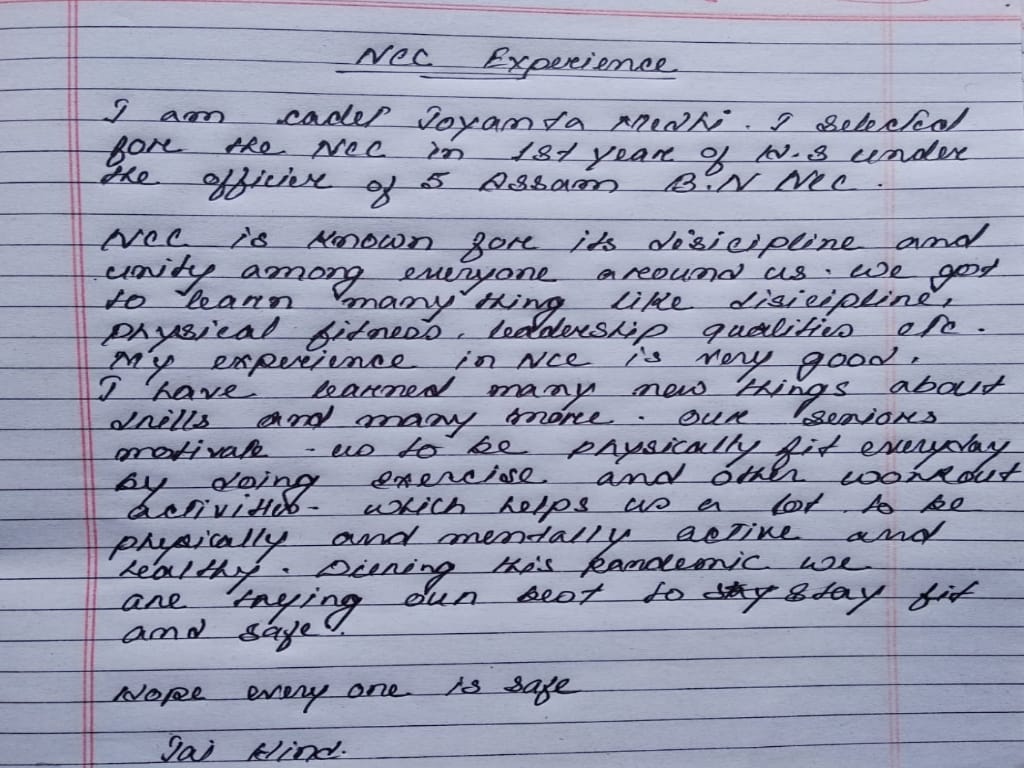 NCC Experience
I am cadet Joyanta Medhi. I selected
fore the NCC in 1st year of H.S under
the officier of 5 Assam B.N NCC.
NCC is known fore its disicipline and
unity among everyone around us. we got
to learn many thing like disicipline,
physical fitness, leadership qualities etc.
My experience in NCC is very good.
I have learned many new things about
drills and many more. our seniors
motivate us to be physically fit everyday
by doing exercise and other workout
activities which helps us a lot to be
physically and mentally active and
healthy. During this pandemic we
are trying our best to stay fit
and safe.
Hope every one is safe
Jai Hind.